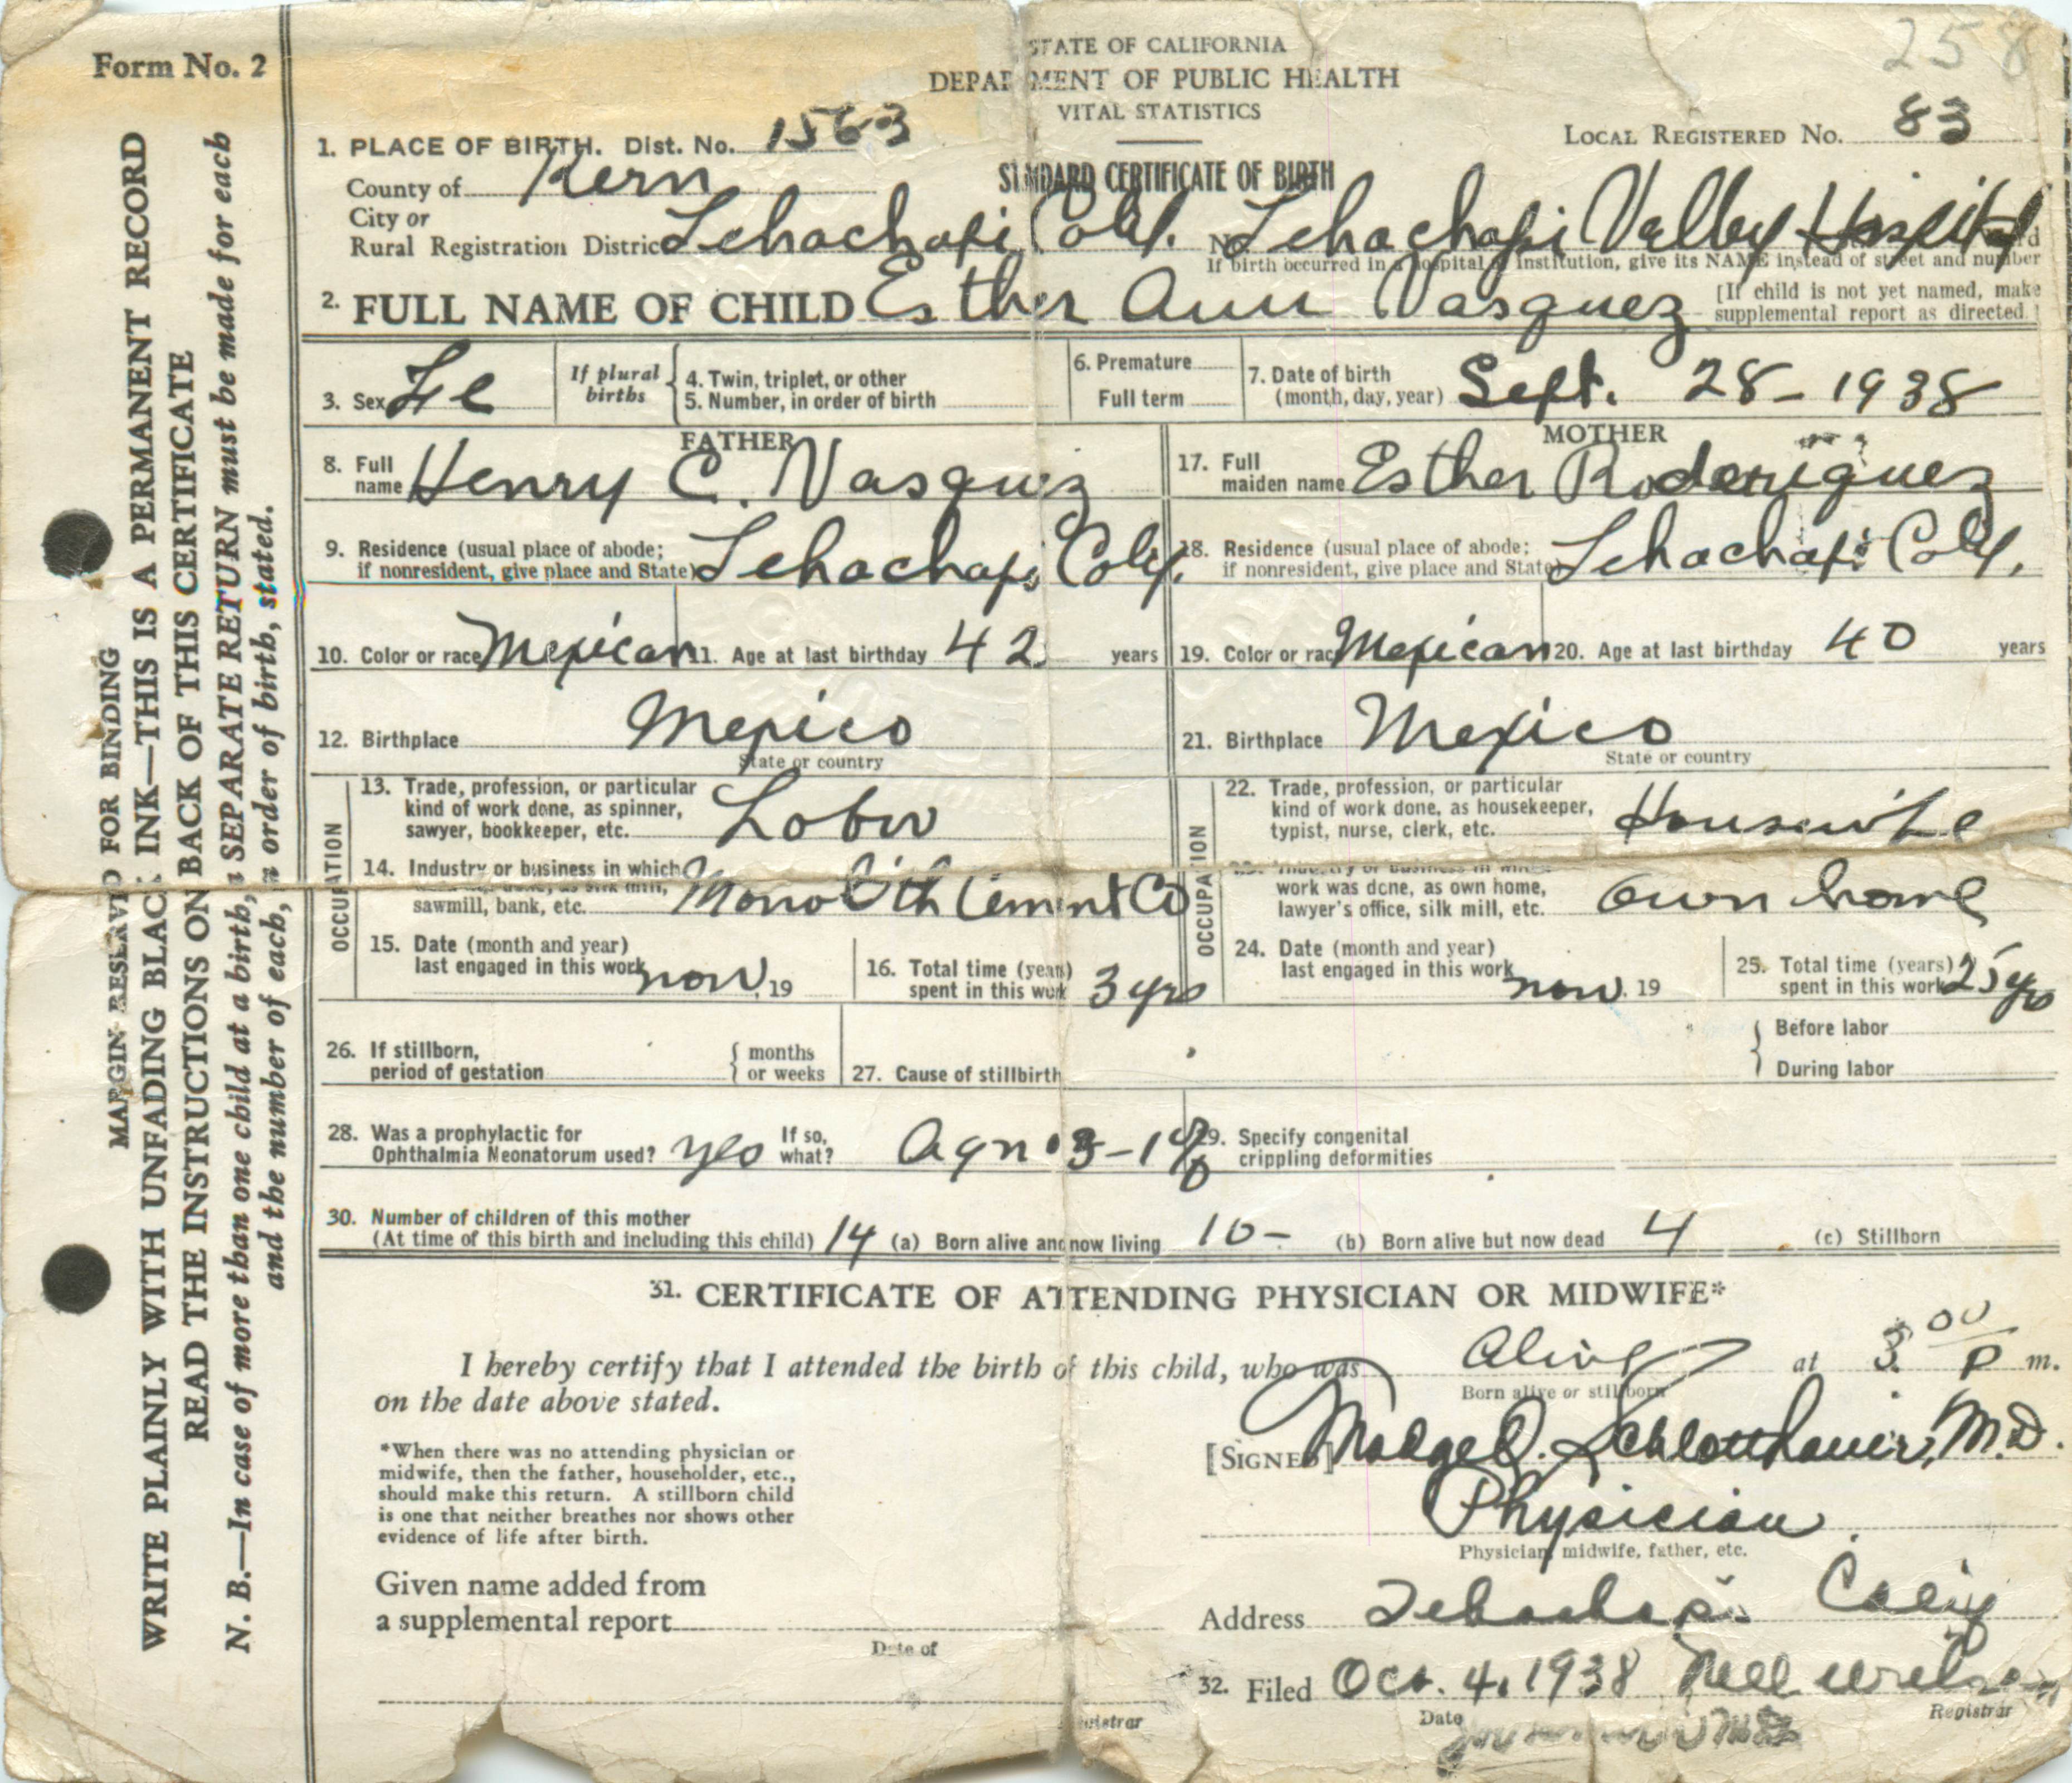 Form No. 2
258
STATE OF CALIFORNIA
DEPARTMENT OF PUBLIC HEALTH
VITAL STATISTICS
LOCAL REGISTERED No. 83
1. PLACE OF BIRTH. Dist. No. 1563
STANDARD CERTIFICATE OF BIRTH
County of Kern
City or
Rural Registration District Tehachapi Calif. No. Tehachapi Valley Hospital
If birth occurred in a hospital or institution, give its NAME instead of street and number
2. FULL NAME OF CHILD Esther Ann Vasquez [If child is not yet named, make
supplemental report as directed.]
3. Sex Fe
If plural births
4. Twin, triplet, or other
5. Number, in order of birth
6. Premature
Full term
7. Date of birth
(month, day, year) Sept. 28 - 1938
FATHER
8. Full name Henry C. Vasquez
MOTHER
17. Full maiden name Esther Roderiguez
9. Residence (usual place of abode;
if nonresident, give place and State) Tehachapi Calif.
18. Residence (usual place of abode;
if nonresident, give place and State) Tehachapi Calif.
10. Color or race Mexican 11. Age at last birthday 42 years
19. Color or race Mexican 20. Age at last birthday 40 years
12. Birthplace Mexico
State or country
21. Birthplace Mexico
State or country
OCCUPATION
13. Trade, profession, or particular
kind of work done, as spinner,
sawyer, bookkeeper, etc. Labor
14. Industry or business in which
work was done, as silk mill,
sawmill, bank, etc. Monolith Cement Co
15. Date (month and year)
last engaged in this work now, 19
16. Total time (years)
spent in this work 3 yrs
OCCUPATION
22. Trade, profession, or particular
kind of work done, as housekeeper,
typist, nurse, clerk, etc. Housewife
23. Industry or business in which
work was done, as own home,
lawyer's office, silk mill, etc. own home
24. Date (month and year)
last engaged in this work now, 19
25. Total time (years)
spent in this work 25 yrs
26. If stillborn,
period of gestation { months
or weeks
27. Cause of stillbirth
{ Before labor
During labor
28. Was a prophylactic for
Ophthalmia Neonatorum used? yes If so, what? AgNO3-1%
29. Specify congenital
crippling deformities
30. Number of children of this mother
(At time of this birth and including this child) 14 (a) Born alive and now living 10- (b) Born alive but now dead 4 (c) Stillborn
31. CERTIFICATE OF ATTENDING PHYSICIAN OR MIDWIFE*
I hereby certify that I attended the birth of this child, who was Alive at 3:00 P m.
Born alive or stillborn
on the date above stated.
*When there was no attending physician or
midwife, then the father, householder, etc.,
should make this return. A stillborn child
is one that neither breathes nor shows other
evidence of life after birth.
[SIGNED] Madge O. Schlotthauer, M.D.
Physician
Physician, midwife, father, etc.
Given name added from
a supplemental report
Date of
Registrar
Address Tehachapi Calif
32. Filed Oct. 4, 1938 Nell Wilson
Date
Registrar
MARGIN RESERVED FOR BINDING
WRITE PLAINLY WITH UNFADING BLACK INK—THIS IS A PERMANENT RECORD
READ THE INSTRUCTIONS ON BACK OF THIS CERTIFICATE
N. B.—In case of more than one child at a birth, a SEPARATE RETURN must be made for each
and the number of each, in order of birth, stated.